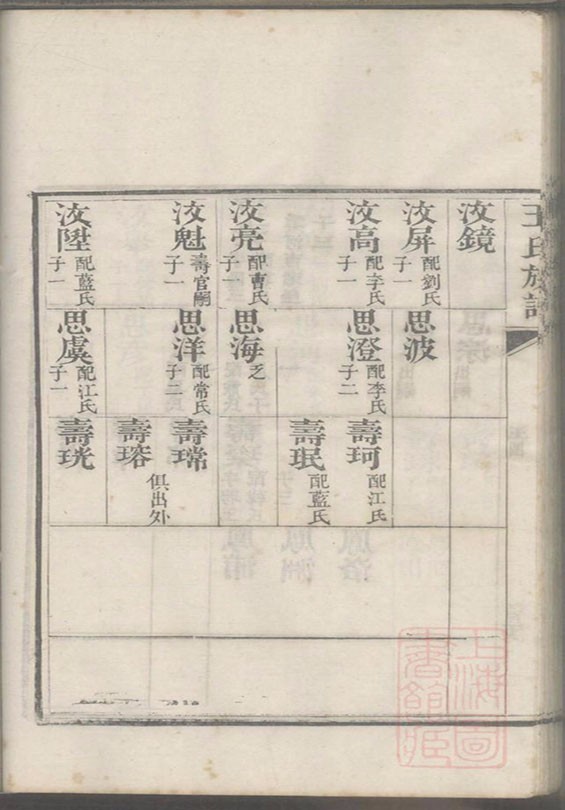 王氏族譜
汝鏡
汝屏 配劉氏 子一
汝高 配李氏 子一
汝亮 配曹氏 子一
汝魁 壽官嗣 子一
汝陞 配藍氏 子一
思波
思澄 配李氏 子二
思海 乏
思洋 配常氏 子二
思虞 配江氏 子一
壽珂 配江氏
壽珉 配藍氏
壽瑺
壽瑢
俱出外
壽珖
上海圖書館藏